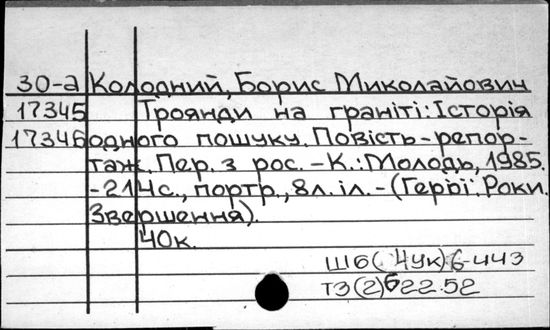 30-а Колодний, Борис Миколайович
17345 Троянди на граніті: Історія
17346 одного пошуку. Повість-репор-
таж. Пер. з рос. - К.: Молодь, 1985.
-214с., портр., 8л. іл. - (Герої. Роки.
Звершення).
40к.
Ш6(4Ук)6-443
Т3(2)622.52